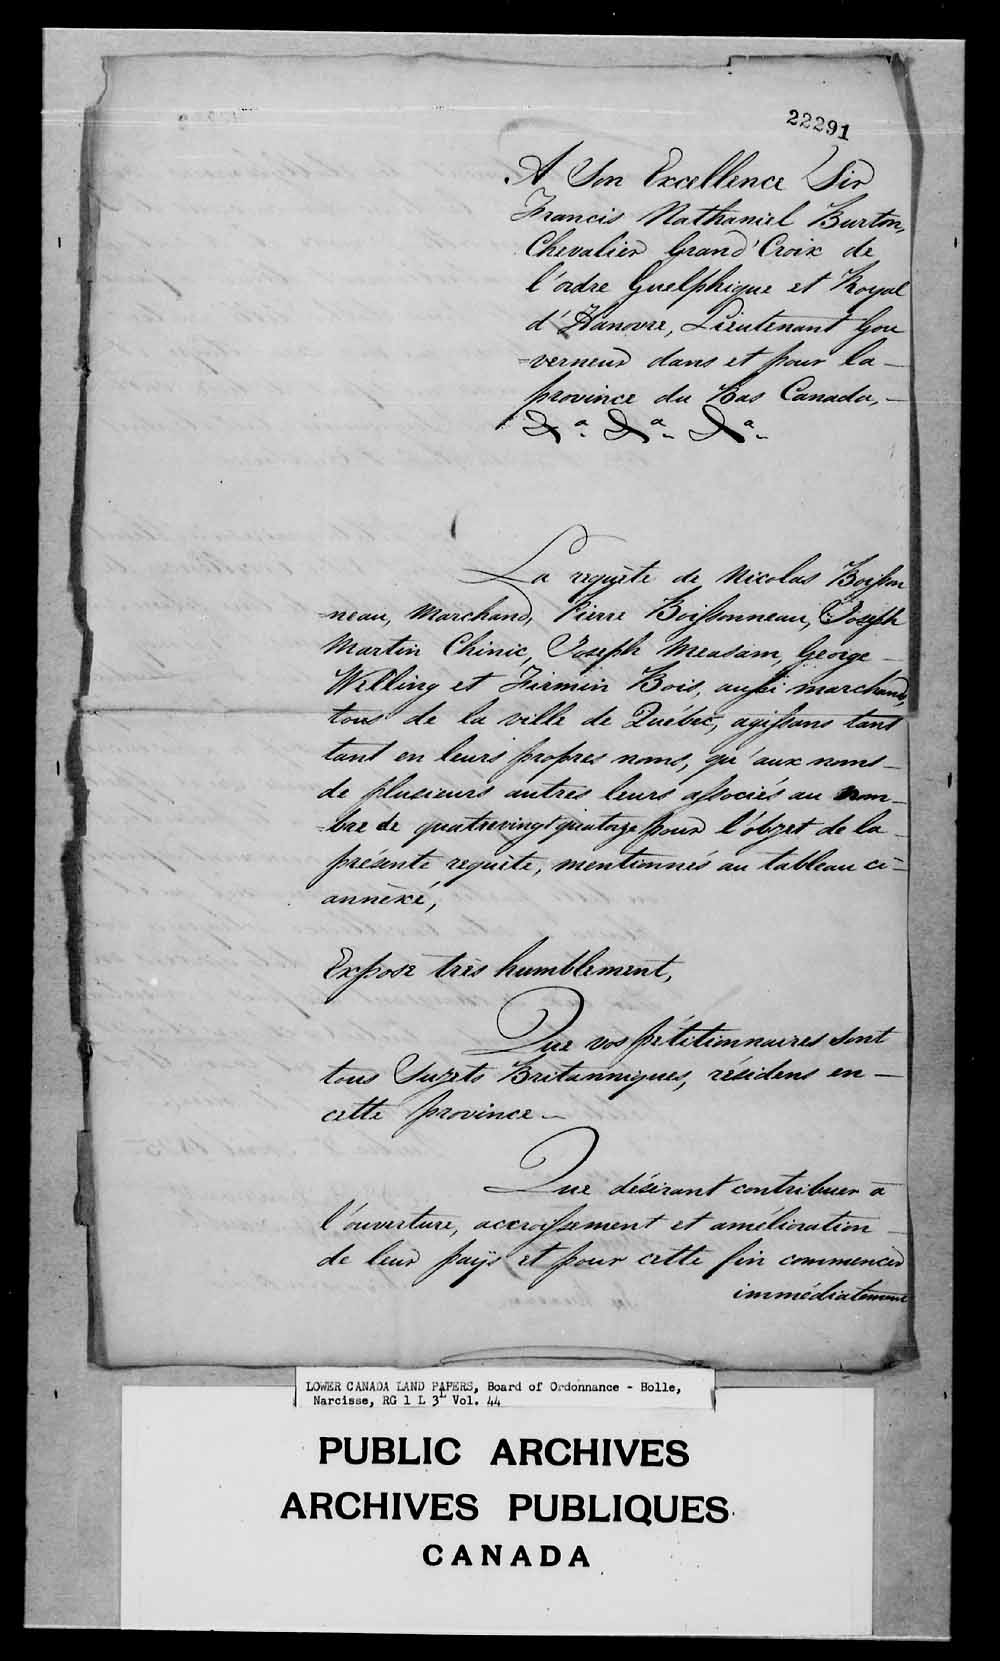 22291
A Son Excellence Sir
Francis Nathaniel Burton,
Chevalier Grand' Croix de
l'ordre Guelphique et Royal
d'Hanovre, Lieutenant Gou
=verneur dans et pour la —
province du Bas Canada, —
&a. &a. &a.
La requête de Nicolas Boisson
=neau, Marchand, Pierre Boissonneau, Joseph
Martin Chinic, Joseph Measam, George —
Welling et Firmin Bois, aussi marchands,
tous de la ville de Québec, agissans tant
tant en leurs propres noms, qu'aux noms —
de plusieurs autres leurs associés au nom —
=bre de quatrevingt quatorze pour l'objet de la —
présente requête, mentionnés au tableau ci-
annéxé,
Expose très humblement,
Que vos pétitionnaires sont
tous Sujets Britanniques, résidens en —
cette province —
Que désirant contribuer à
l'ouverture, accroissement et amélioration —
de leur païs et pour cette fin commencer
immédiatement
LOWER CANADA LAND PAPERS, Board of Ordonnance - Bolle,
Narcisse, RG 1 L 3L Vol. 44
PUBLIC ARCHIVES
ARCHIVES PUBLIQUES
CANADA